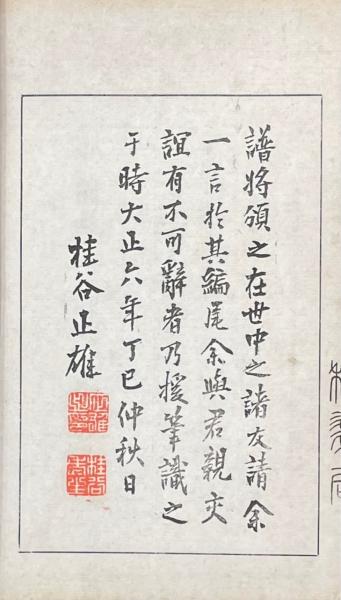 譜將頒之在世中之諸友請余
一言於其編尾余與君親交
誼有不可辭者乃援筆識之
于時大正六年丁巳仲秋日
桂谷正雄